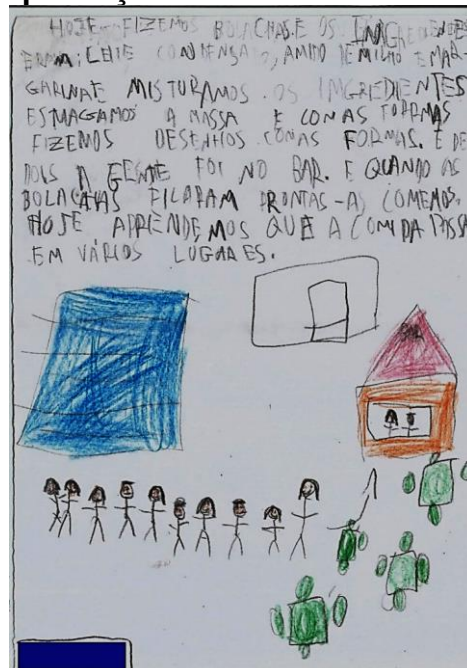 HOJE FIZEMOS BOLACHAS.E OS INGREDIENTES
ERAM: LEITE CONDENSADO, AMIDO DE MILHO E MAR-
GARINA E MISTURAMOS OS INGREDIENTES
ESMAGAMOS A MASSA E CON AS FORMAS
FIZEMOS DESENHOS CON AS FORMAS. E DE
POIS A GENTE FOI NO BAR. E QUANDO AS
BOLACHAS FICARAM PRONTAS-AS COMEMOS.
HOJE APRENDEMOS QUE A COMIDA PASSA
EM VÁRIOS LUGARES.
BAR